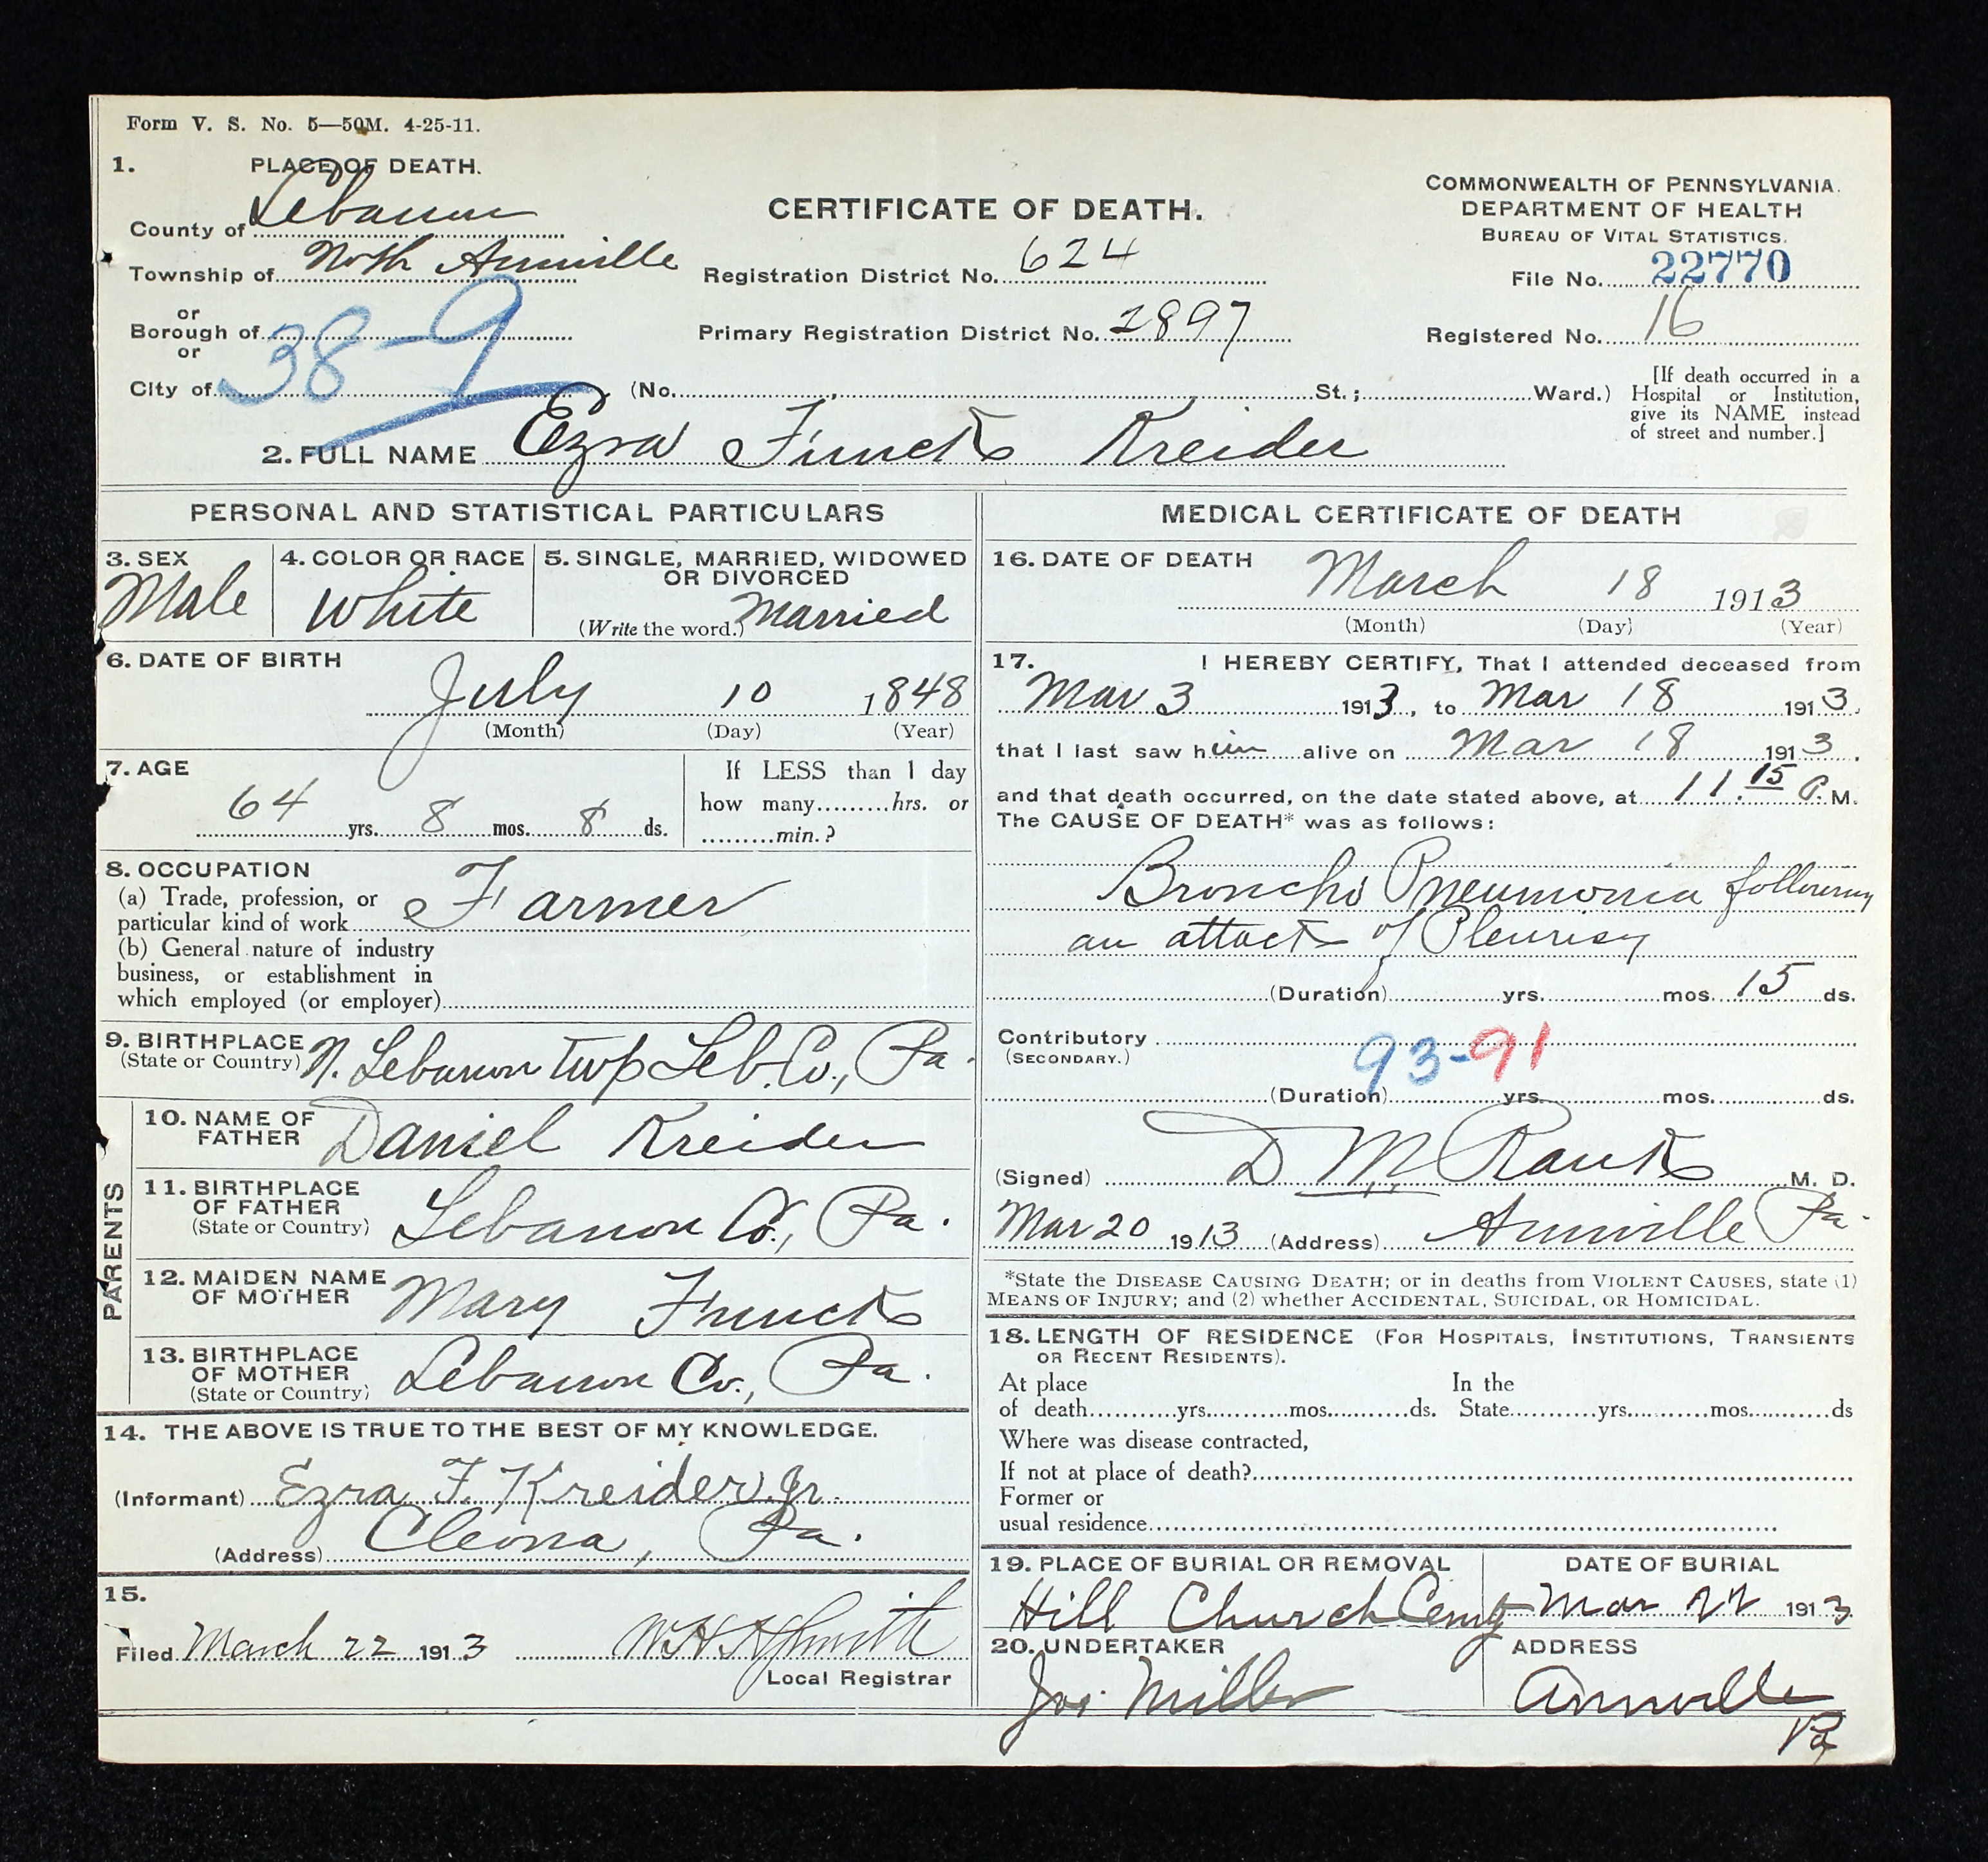 Form V. S. No. 5—50M. 4-25-11.
1. PLACE OF DEATH.
County of Lebanon
Township of North Annville
or
Borough of
or
City of 38-9
CERTIFICATE OF DEATH.
Registration District No. 624
Primary Registration District No. 2897
(No. , St.; Ward.)
COMMONWEALTH OF PENNSYLVANIA.
DEPARTMENT OF HEALTH
BUREAU OF VITAL STATISTICS.
File No. 22770
Registered No. 16
[If death occurred in a
Hospital or Institution,
give its NAME instead
of street and number.]
2. FULL NAME Ezra Funck Kreider
PERSONAL AND STATISTICAL PARTICULARS
3. SEX
Male
4. COLOR OR RACE
White
5. SINGLE, MARRIED, WIDOWED
OR DIVORCED
(Write the word.) Married
6. DATE OF BIRTH
July 10 1848
(Month) (Day) (Year)
7. AGE
64 yrs. 8 mos. 8 ds.
If LESS than 1 day
how many.........hrs. or
.........min.?
8. OCCUPATION
(a) Trade, profession, or
particular kind of work Farmer
(b) General nature of industry
business, or establishment in
which employed (or employer)
9. BIRTHPLACE
(State or Country) N. Lebanon Twp Leb. Co., Pa.
PARENTS
10. NAME OF
FATHER Daniel Kreider
11. BIRTHPLACE
OF FATHER
(State or Country) Lebanon Co., Pa.
12. MAIDEN NAME
OF MOTHER Mary Funck
13. BIRTHPLACE
OF MOTHER
(State or Country) Lebanon Co., Pa.
14. THE ABOVE IS TRUE TO THE BEST OF MY KNOWLEDGE.
(Informant) Ezra F. Kreider Jr.
(Address) Cleona, Pa.
15.
Filed March 22 1913
Local Registrar
MEDICAL CERTIFICATE OF DEATH
16. DATE OF DEATH
March 18 1913
(Month) (Day) (Year)
17. I HEREBY CERTIFY, That I attended deceased from
Mar 3 1913, to Mar 18 1913.
that I last saw him alive on Mar 18 1913.
and that death occurred, on the date stated above, at 11.15 P. M.
The CAUSE OF DEATH* was as follows:
Broncho Pneumonia following
an attack of Pleurisy
(Duration) yrs. mos. 15 ds.
Contributory
(SECONDARY.)
93-91
(Duration) yrs. mos. ds.
(Signed) D M Rank M. D.
Mar 20 1913 (Address) Annville Pa.
*State the DISEASE CAUSING DEATH; or in deaths from VIOLENT CAUSES, state (1)
MEANS OF INJURY; and (2) whether ACCIDENTAL, SUICIDAL, OR HOMICIDAL.
18. LENGTH OF RESIDENCE (FOR HOSPITALS, INSTITUTIONS, TRANSIENTS
OR RECENT RESIDENTS).
At place In the
of death yrs. mos. ds. State yrs. mos. ds
Where was disease contracted,
If not at place of death?
Former or
usual residence
19. PLACE OF BURIAL OR REMOVAL
Hill Church Cemy
DATE OF BURIAL
Mar 22 1913
20. UNDERTAKER
Jos. Miller
ADDRESS
Annville
Pa